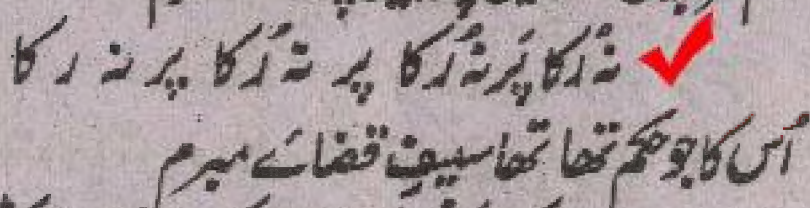 نہ رُکا پَر نہ رُکا پر نہ رُکا پر نہ رکا
اُس کا جو حکم تھا تھا سیفِ قضائے مبرم